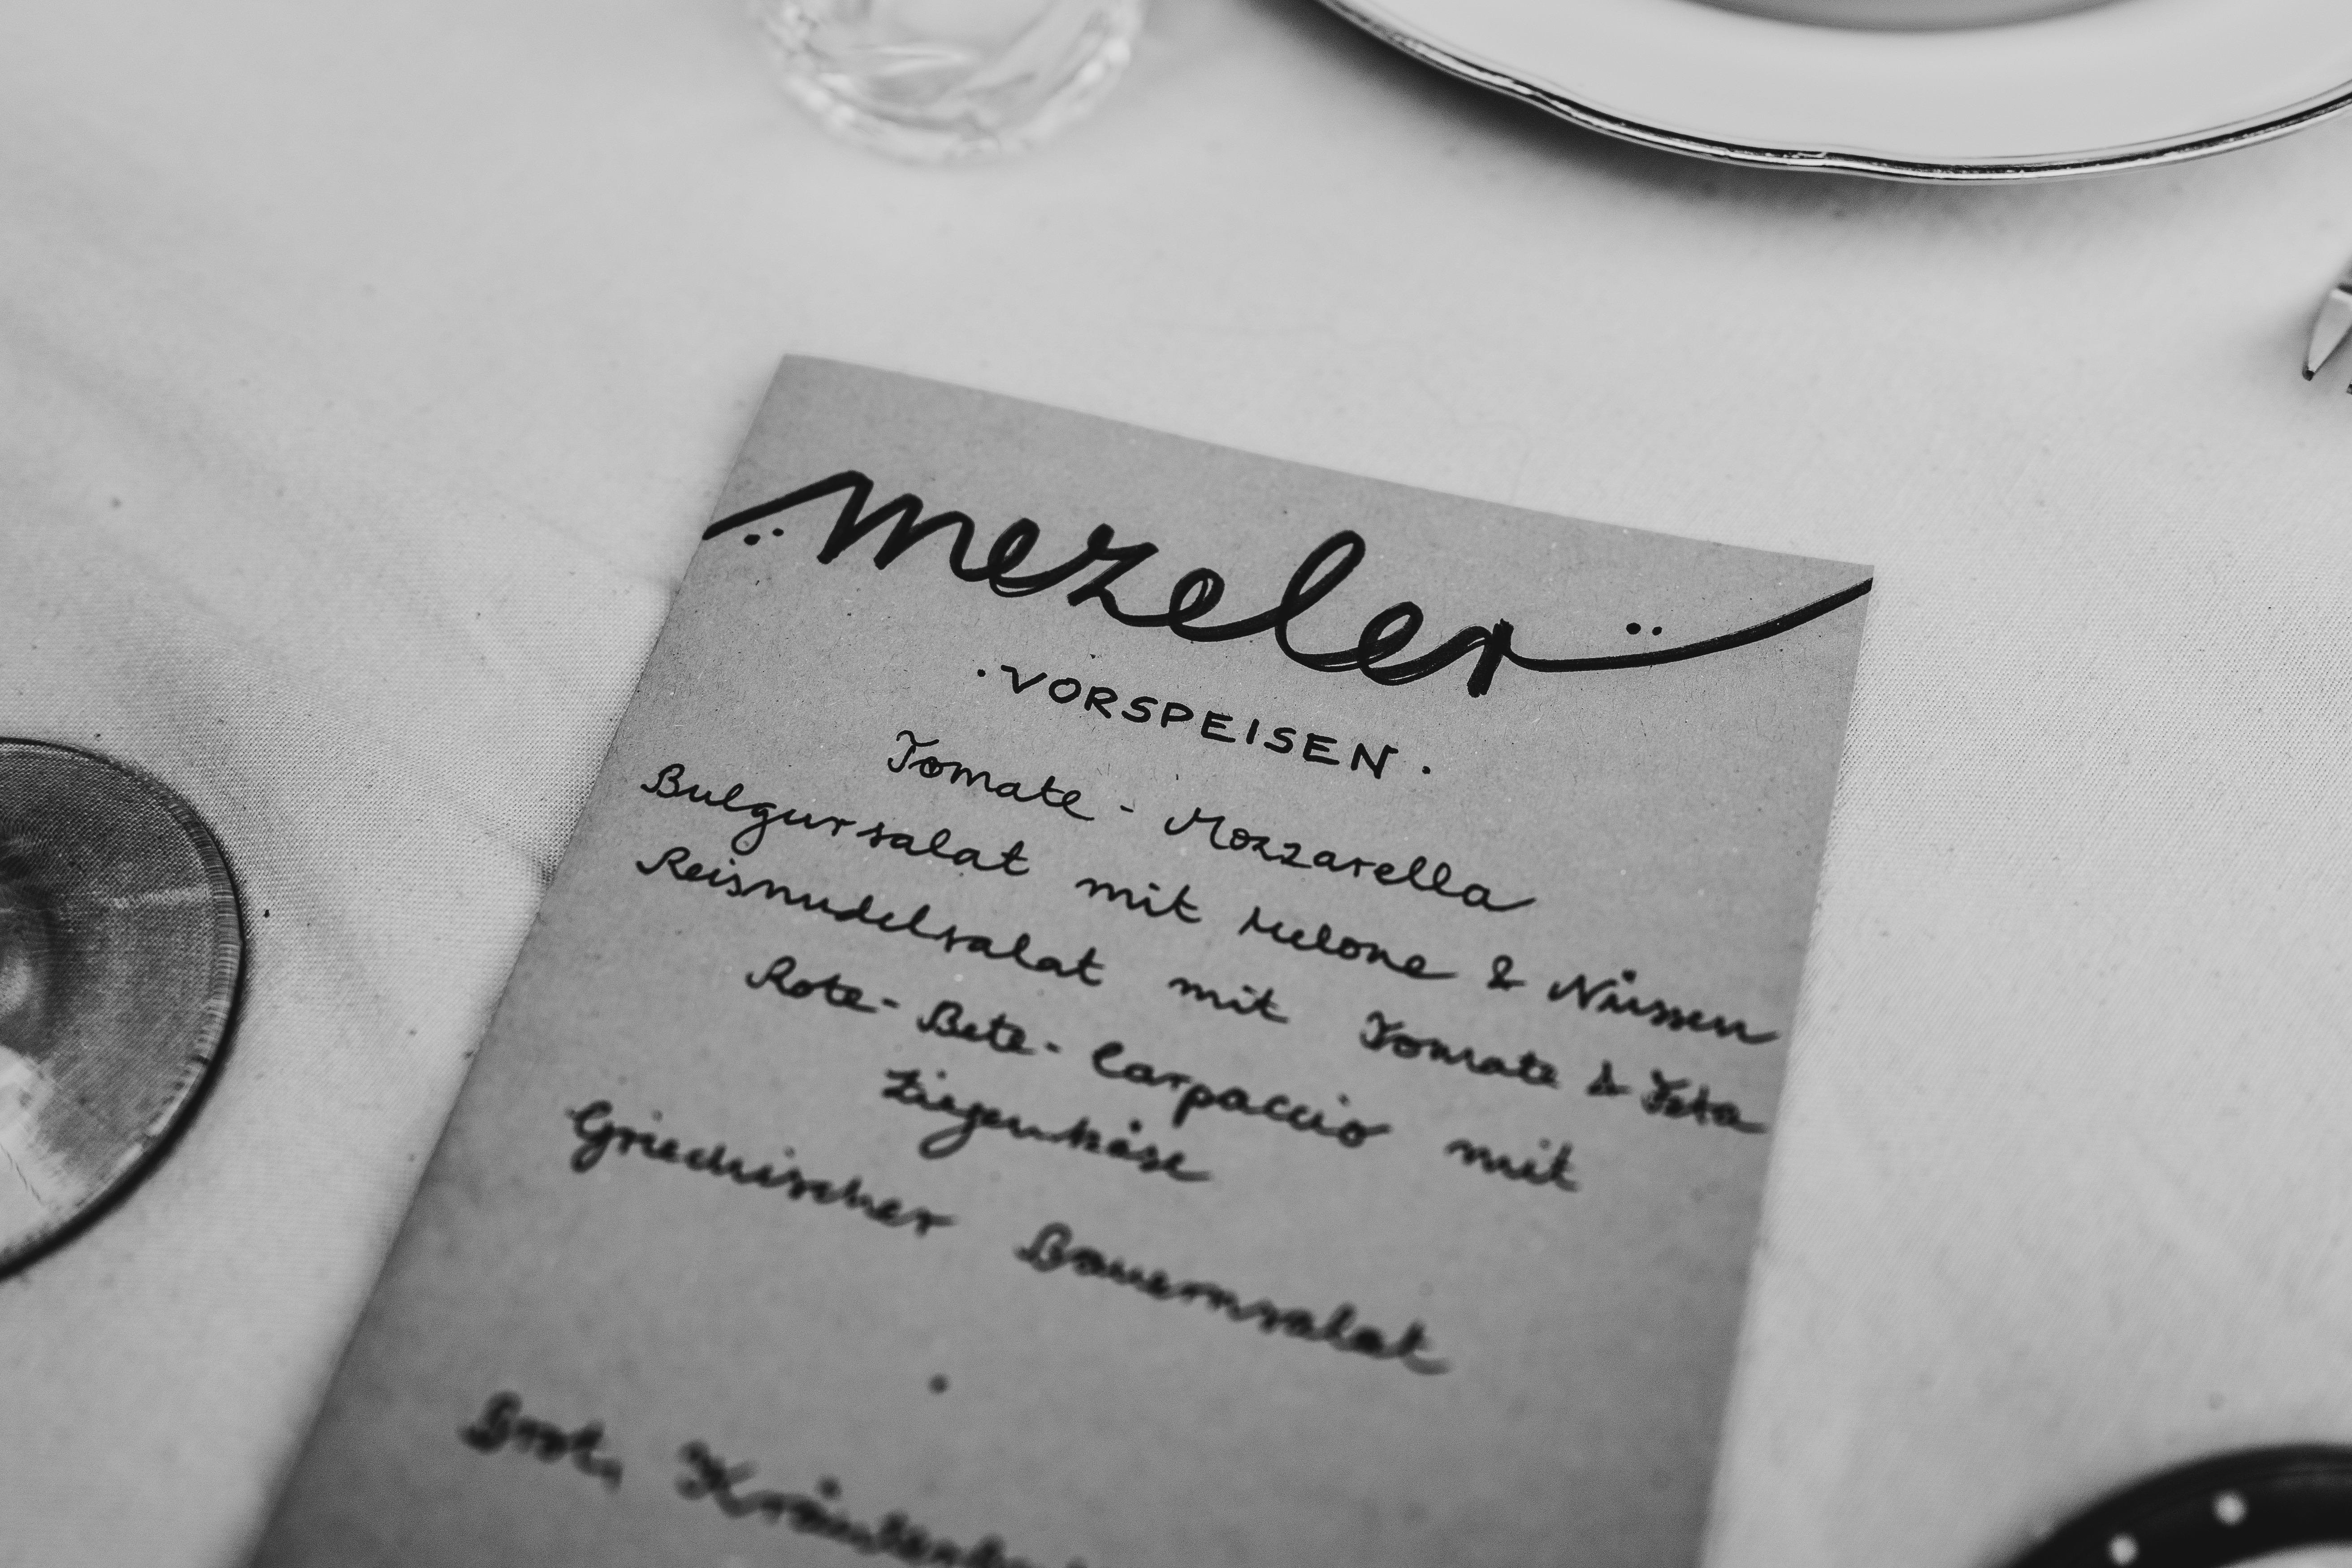 mezeler
·VORSPEISEN·
Tomate - Mozzarella
Bulgursalat mit Melone & Nüssen
Reisnudelsalat mit Tomate & Feta
Rote-Bete-Carpaccio mit
Ziegenkäse
Griechischer Bauernsalat
Brot,